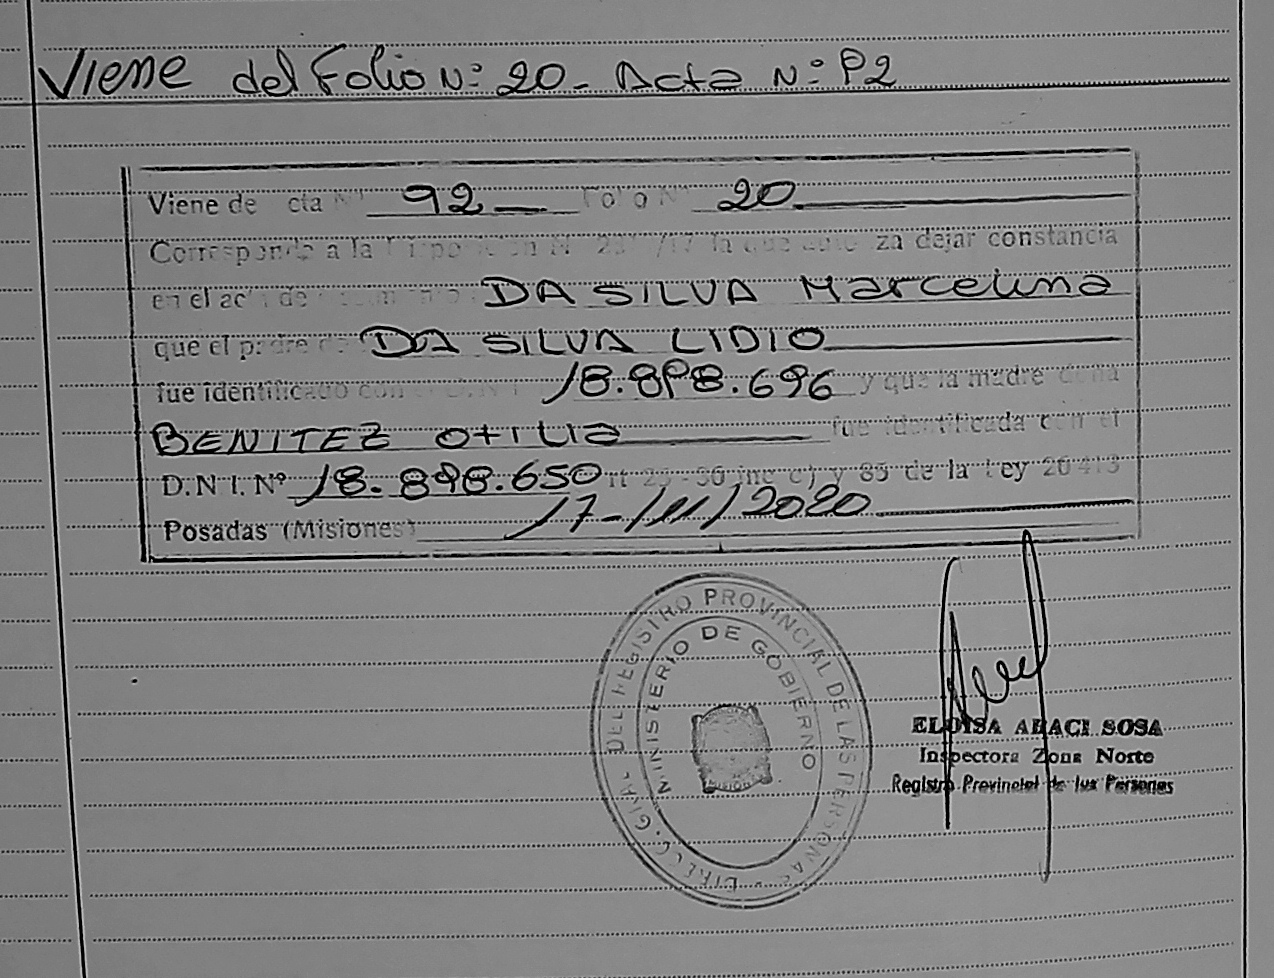 Viene del Folio Nº 20 - Acta Nº 92
Viene de cta Nº 92 Folio Nº 20
Corresponde a la la que auto za dejar constancia
en el ac de DA SILVA Marcelina
que el padre DA SILVA LIDIO
fue identificado con D.N.I. 18.898.696 y que la madre doña
BENITEZ OTILIA fue identificada con el
D.N.I. Nº 18.898.650 rt 25 - 36 inc c) y 85 de la Ley 26413
Posadas (Misiones) 17-/11/2020
DIRECC. GRAL. DEL REGISTRO PROVINCIAL DE LAS PERSONAS
MINISTERIO DE GOBIERNO
MISIONES
ELOISA ABACI SOSA
Inspectora Zona Norte
Registro Provincial de las Personas